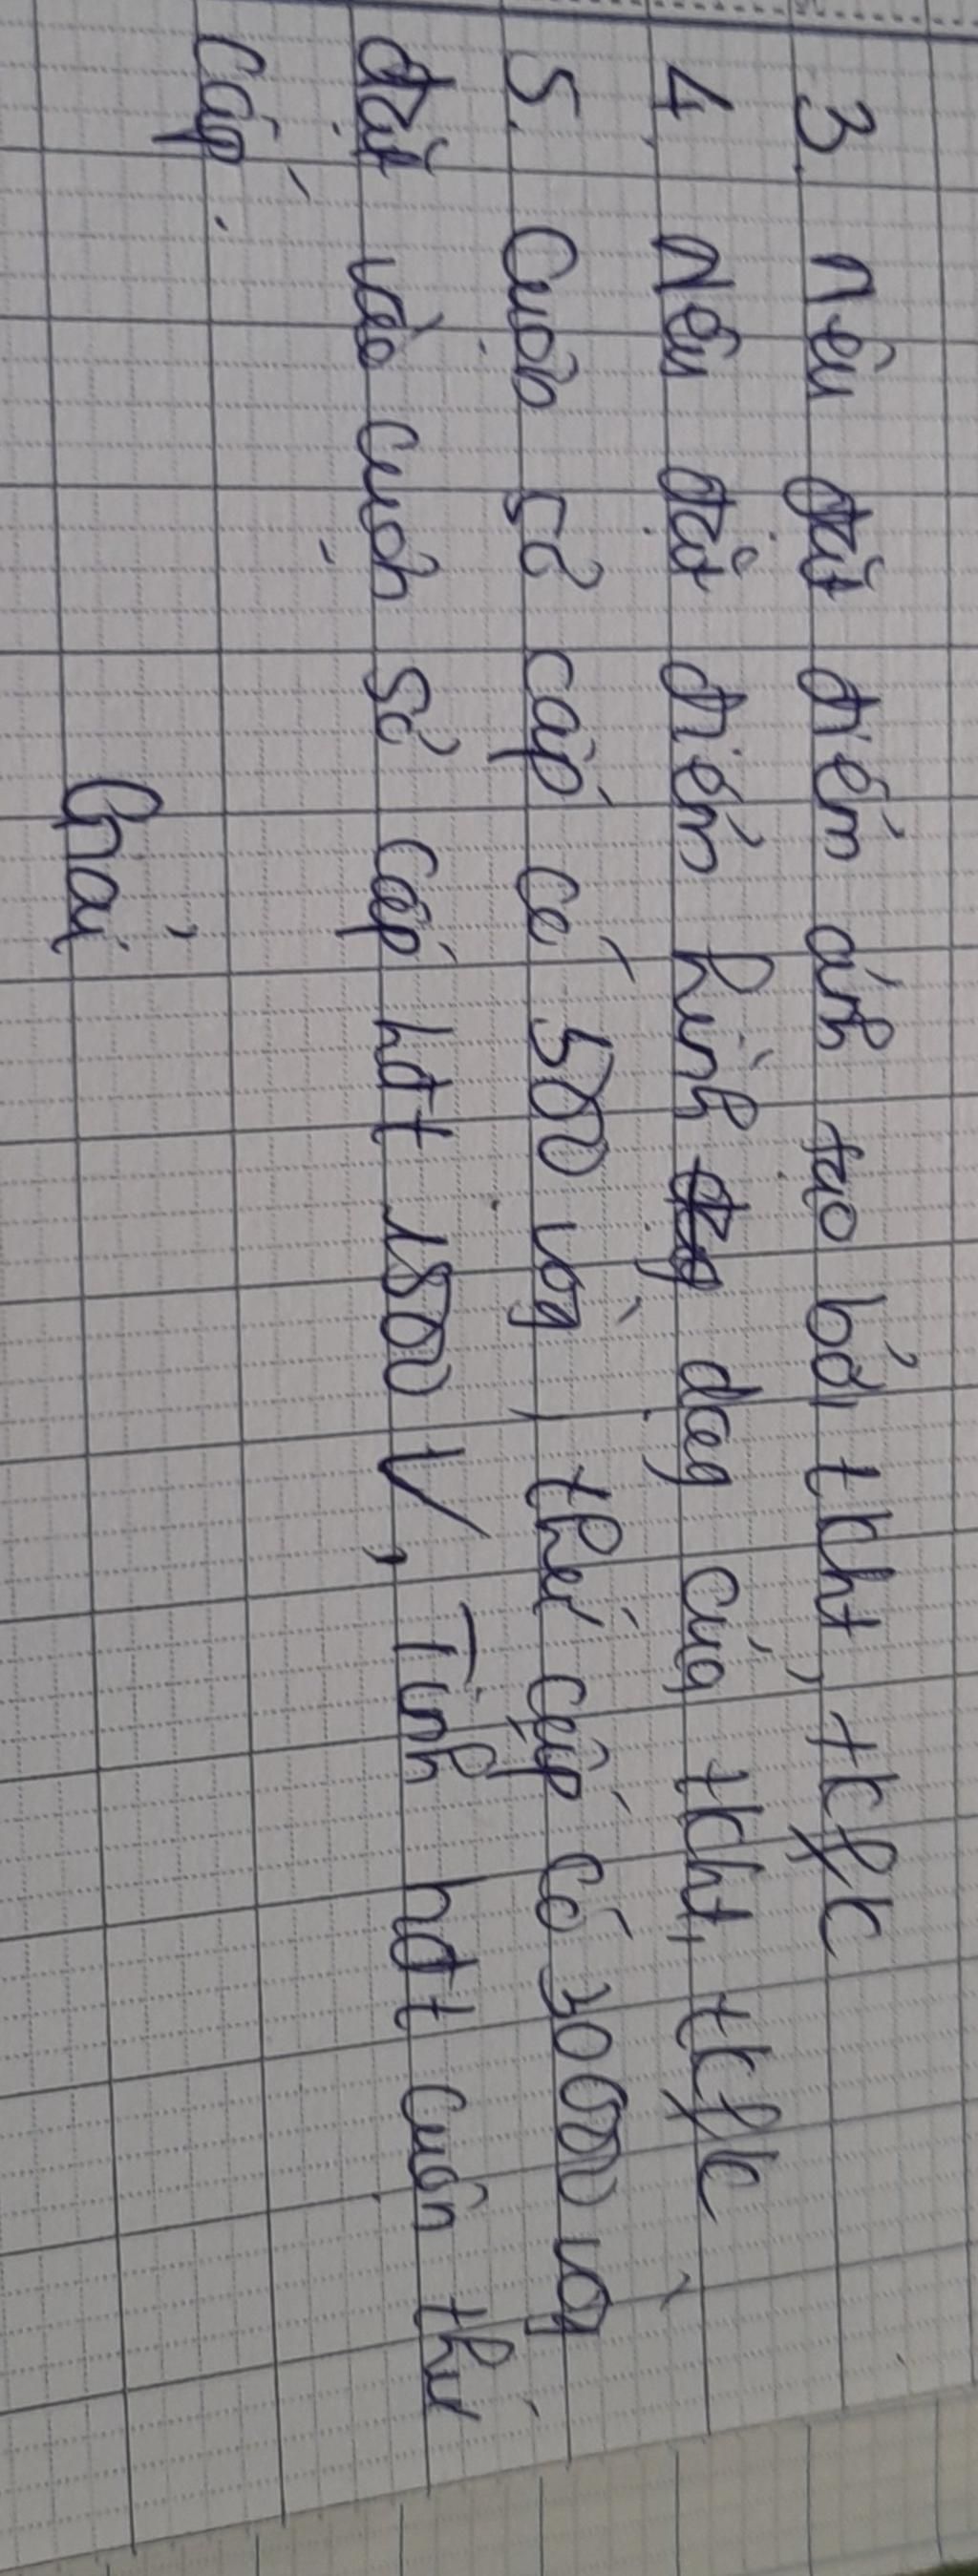 3. nêu đặt điểm ảnh tạo bởi tkht, tkfk
4. Nêu đặt điểm hình dạg của tkht, tkfk
5. Cuộn sơ cấp có 500 vòg, thứ cấp có 3000 vòg
đặt vào cuộn sơ cấp hđt 1500 V, Tính hđt cuộn thứ
cấp.
Giải